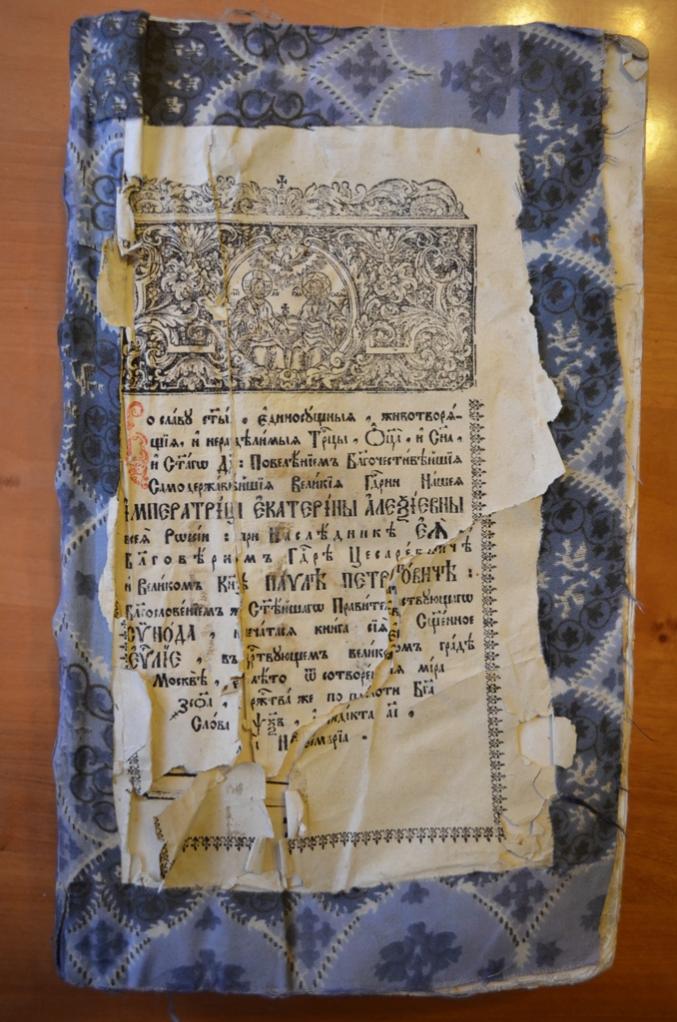 Во славу ст҃ы́ѧ, є҆диносꙋщныѧ, животворѧ́-
щїѧ, и҆ нераздѣ́лимыѧ Трⷪ҇цы, Ѻ҆ц҃а̀, и҆ Сн҃а,
и҆ Ст҃а́гѡ Дх҃а: Повелѣ́нїемъ Бл҃гочести́вѣйшїѧ
Самодержа́внѣйшїѧ Вели́кїѧ Гдⷭ҇рни На́шеѧ
И҆МПЕРАТРИ́ЦЫ Є҆КАТЕРИ́НЫ А҆ЛЕѮІ́ЕВНЫ
всеѧ̀ Рѡссі́и: при Наслѣ́дникѣ Є҆Ѧ̀,
Бл҃говѣ́рномъ Гдⷭ҇рѣ Цесаре́вичѣ
и҆ Вели́комъ Кн҃зѣ ПА́VЛѢ ПЕТРО́ВИЧѢ:
Бл҃гослове́нїемъ же Ст҃ѣ́йшагѡ Прави́тельствꙋющагѡ
СѴНО́ДА, печа́тасѧ кни́га сїѧ̀ Сщ҃е́нное
Є҆ѴⷢЛІЕ, въ ца́рствꙋющемъ вели́комъ гра́дѣ
Москвѣ̀, въ лѣ́то ѿ сотворе́нїѧ мі́ра
рж҃тва́ же по пло́ти Бг҃а
Сло́ва, і҆нді́кта а҃і,